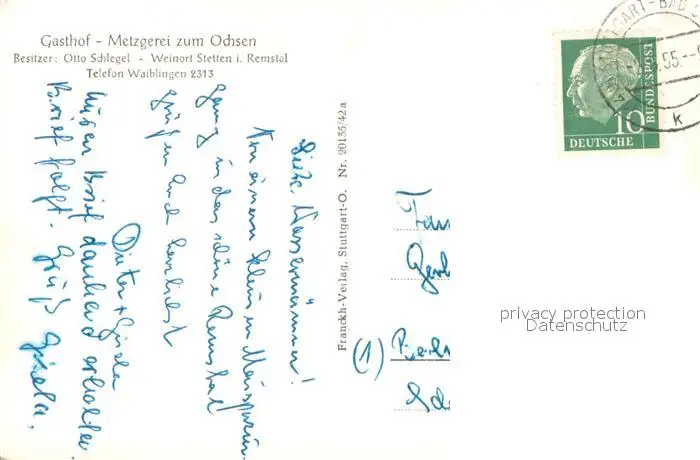 Gasthof - Metzgerei zum Ochsen
Besitzer: Otto Schlegel - Weinort Stetten i. Remstal
Telefon Waiblingen 2313
Liebe Wassermänner!
Von einem kleinen
gang in das schöne Remstal
grüßen Euch herzlichst
Dieter + Gisela
Brief dankend erhalten
Brief folgt. Gruß
Gisela.
Franckh-Verlag, Stuttgart-O. Nr. 20135/42a
(1)
STUTTGART-BAD
55
k
10
DEUTSCHE
BUNDESPOST
privacy protection
Datenschutz